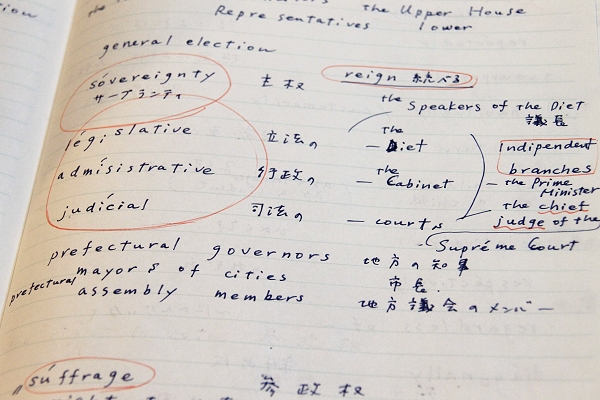 the Upper House
Representatives lower
general election
sóvereignty 主权 reign 統べる
サーブランティ
the Speakers of the Diet
議長
législative 立法の — the Diet Indipendent
branches
admísistrative 行政の — the Cabinet — the Prime
Minister
judícial 司法の — courts the chief
judge of the
Supréme Court
prefectural governors 地方の知事
mayors of cities 市長.
prefectural assembly members 地方議会のメンバー
súffrage 参政权